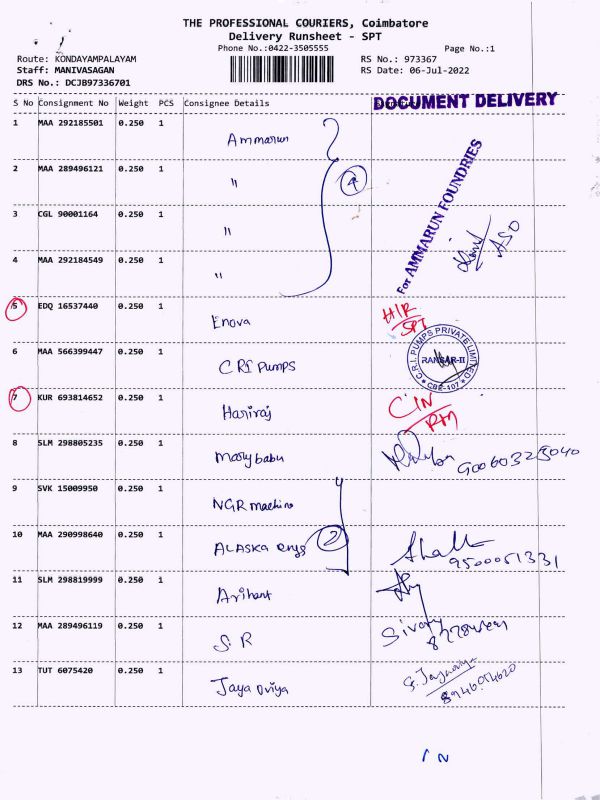 THE PROFESSIONAL COURIERS, Coimbatore
Delivery Runsheet - SPT
Phone No.:0422-3505555
Page No.:1
Route: KONDAYAMPALAYAM
RS No.: 973367
Staff: MANIVASAGAN
RS Date: 06-Jul-2022
DRS No.: DCJB97336701
S No Consignment No Weight PCS Consignee Details
DOCUMENT DELIVERY
1 MAA 292185501 0.250 1 Ammarun
2 MAA 289496121 0.250 1 "
4
3 CGL 90001164 0.250 1 "
For AMMARUN FOUNDRIES
ASO
4 MAA 292184549 0.250 1 "
5 EDQ 16537440 0.250 1 Enova HIR
SPT
6 MAA 566399447 0.250 1 CRI PUMPS
C.R.I. PUMPS PRIVATE LIMITED
CBE-107
7 KUR 693814652 0.250 1 Hariraj CIN
RM
8 SLM 298805235 0.250 1 Marybabu
9 SVK 15009950 0.250 1 NGR machine
10 MAA 290998640 0.250 1 ALASKA Engg 2
9500051331
11 SLM 298819999 0.250 1 Arihant
12 MAA 289496119 0.250 1 S.R
13 TUT 6075420 0.250 1 Jaya Priya
IN